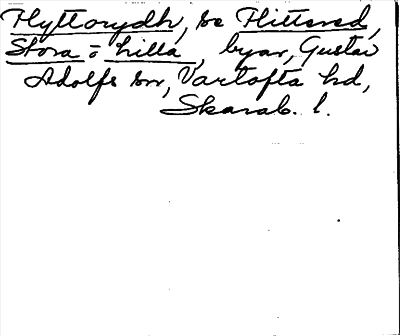 Flyttorydh, se Flittered,
Stora o Lilla, byar, Gustav
Adolfs sn, Vartofta hd,
Skarab. l.